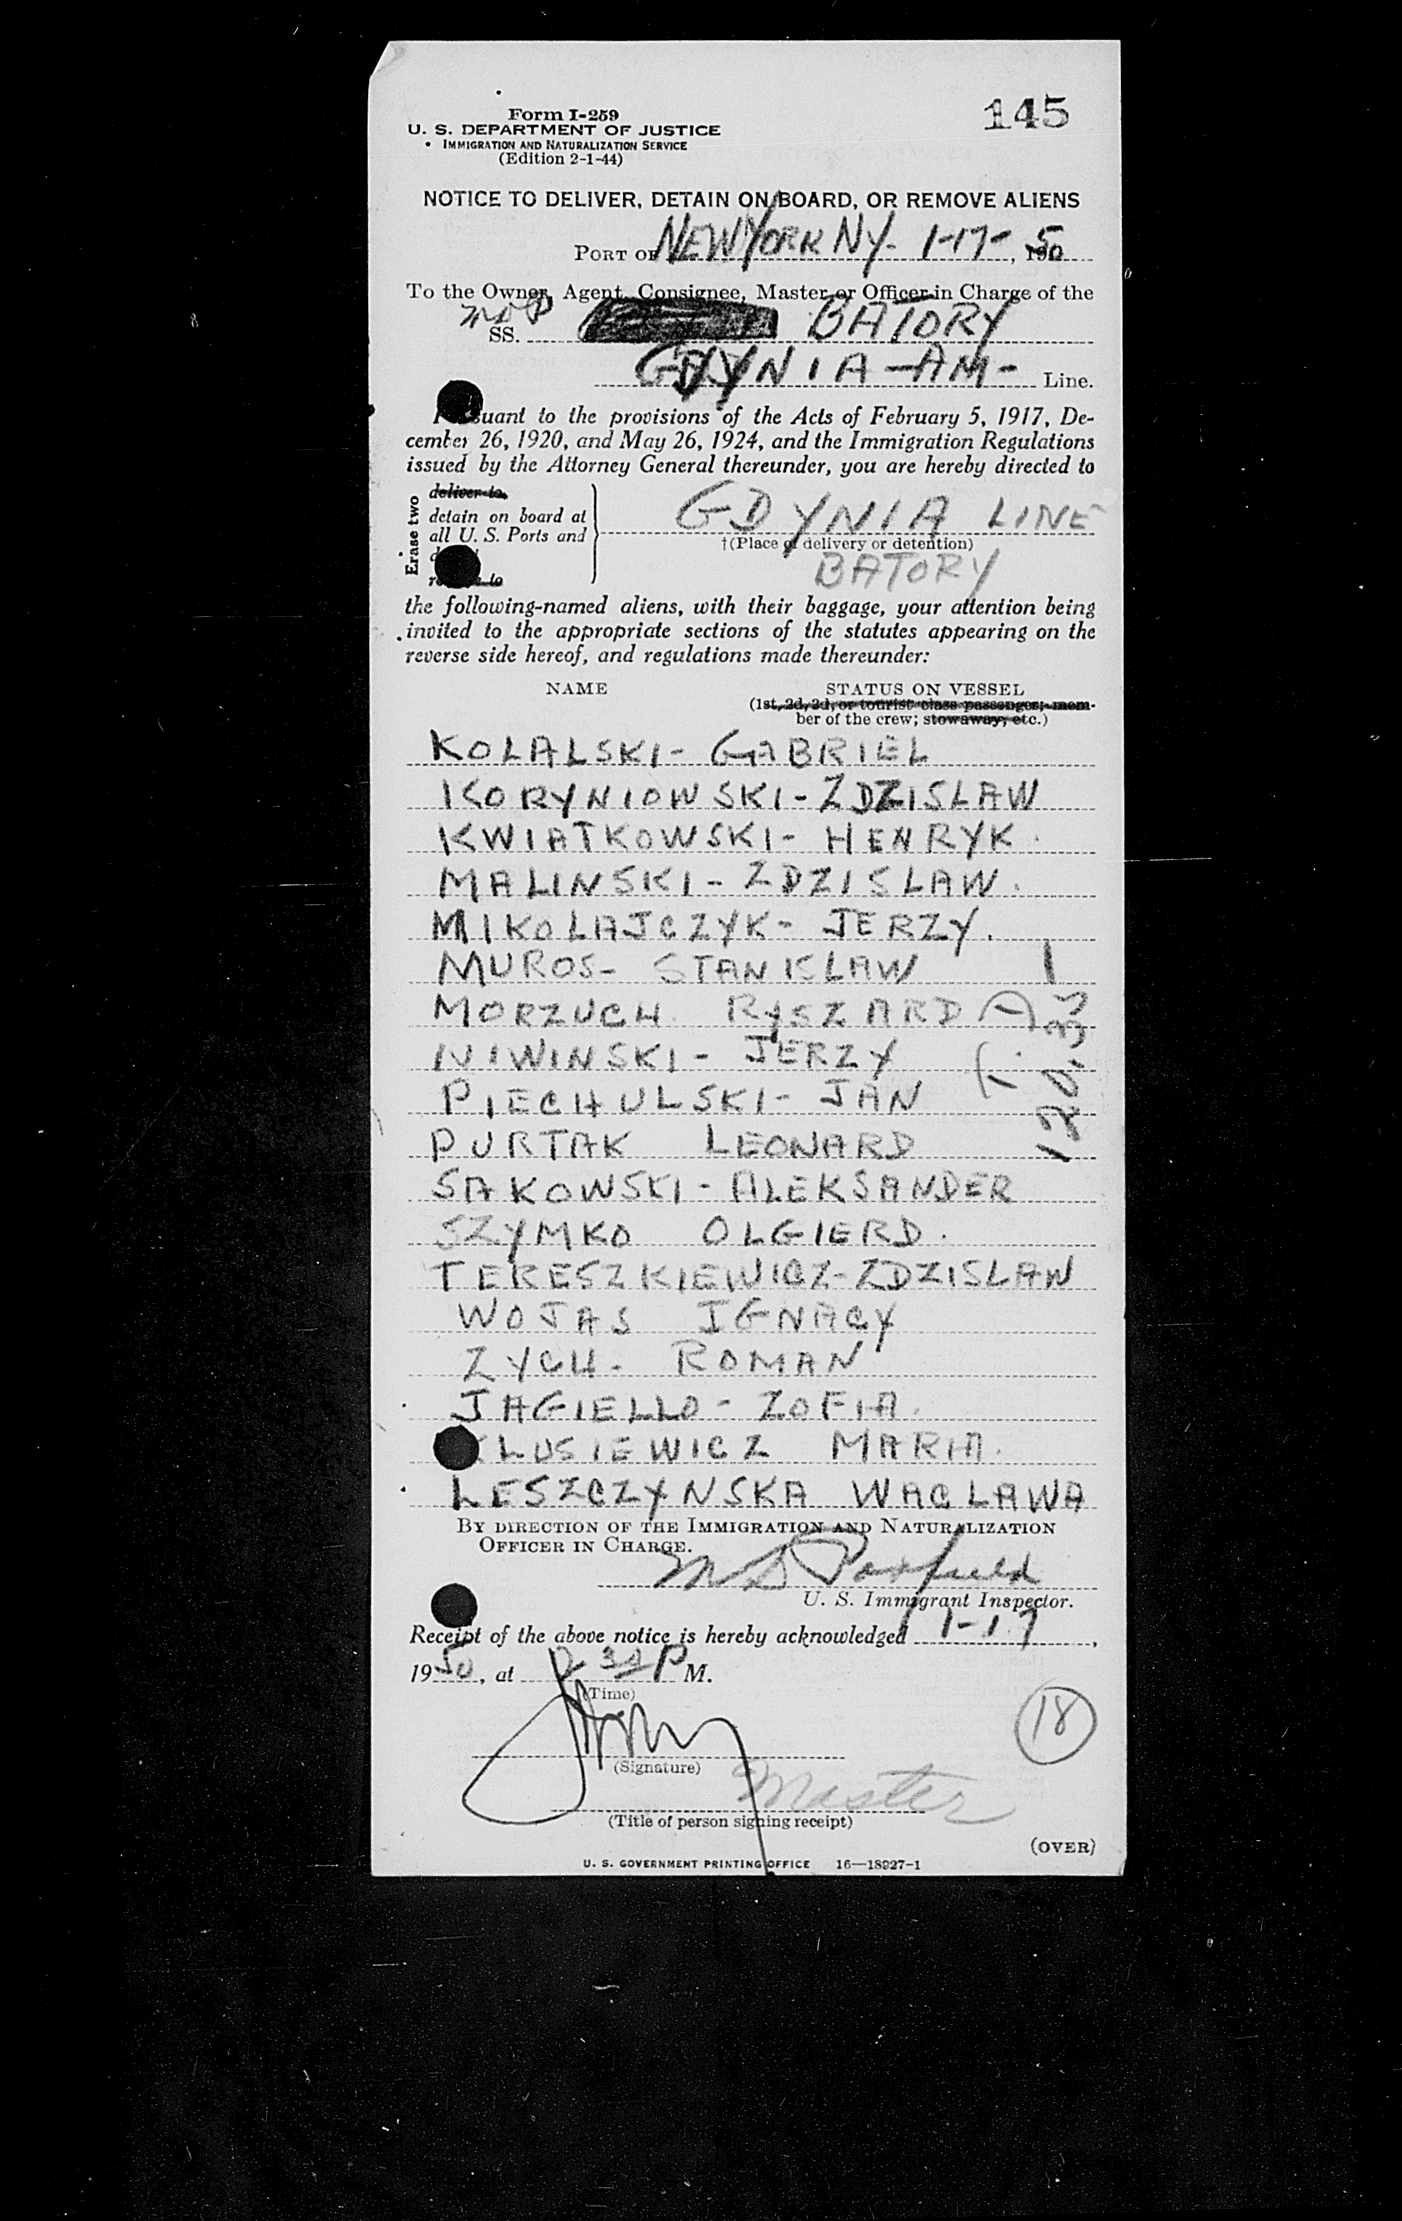 Form I-259
145
U. S. DEPARTMENT OF JUSTICE
IMMIGRATION AND NATURALIZATION SERVICE
(Edition 2-1-44)
NOTICE TO DELIVER, DETAIN ON BOARD, OR REMOVE ALIENS
PORT OF NEW YORK NY- 1-17-, 1950
To the Owner, Agent, Consignee, Master or Officer in Charge of the
SS. BATORY
GDYNIA-AM- Line.
Pursuant to the provisions of the Acts of February 5, 1917, De-
cember 26, 1920, and May 26, 1924, and the Immigration Regulations
issued by the Attorney General thereunder, you are hereby directed to
Erase two
deliver to
detain on board at
all U. S. Ports and
to
GDYNIA LINE
†(Place of delivery or detention)
BATORY
the following-named aliens, with their baggage, your attention being
invited to the appropriate sections of the statutes appearing on the
reverse side hereof, and regulations made thereunder:
NAME STATUS ON VESSEL
(1st, 2d, 3d, or tourist class passenger; mem-
ber of the crew; stowaway, etc.)
KOLALSKI- GABRIEL
KORYNIOWSKI-ZDZISLAW
KWIATKOWSKI- HENRYK.
MALINSKI- ZDZISLAW.
MIKOLAJCZYK- JERZY.
MUROS- STANISLAW
MORZUCH RYSZARD
NIWINSKI- JERZY
PIECHULSKI- JAN
PURTAK LEONARD
SAKOWSKI- ALEKSANDER
SZYMKO OLGIERD.
TERESZKIEWICZ-ZDZISLAW
WOJAS IGNACY
ZYCH- ROMAN
JAGIELLO- ZOFIA.
KLUSIEWICZ MARIA.
LESZCZYNSKA WACLAWA
120.33
BY DIRECTION OF THE IMMIGRATION AND NATURALIZATION
OFFICER IN CHARGE.
M D Porfield
U. S. Immigrant Inspector.
Receipt of the above notice is hereby acknowledged 1-17,
1950, at P M.
(Time)
18
(Signature)
Master
(Title of person signing receipt)
(OVER)
U. S. GOVERNMENT PRINTING OFFICE 16—18927-1